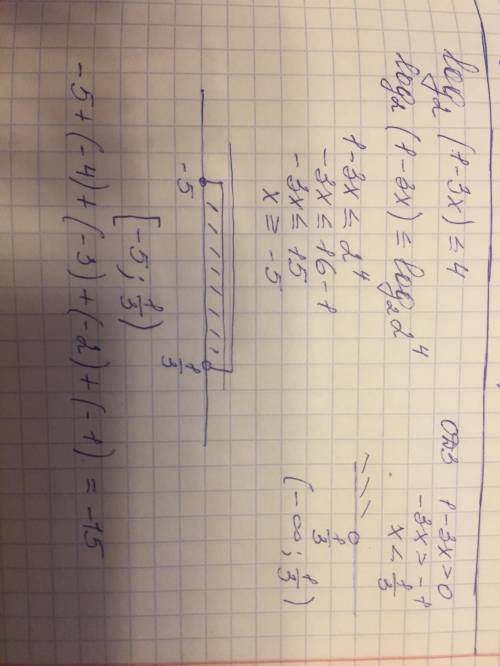 log₂ (1-3x) ≤ 4
log₂ (1-3x) ≤ log₂2⁴
1-3x ≤ 2⁴
-3x ≤ 16-1
-3x ≤ 15
x ≥ -5
ОДЗ 1-3x>0
-3x > -1
x < 1/3
1/3
(-∞; 1/3)
-5 1/3
[-5; 1/3)
-5+(-4)+(-3)+(-2)+(-1) = -15